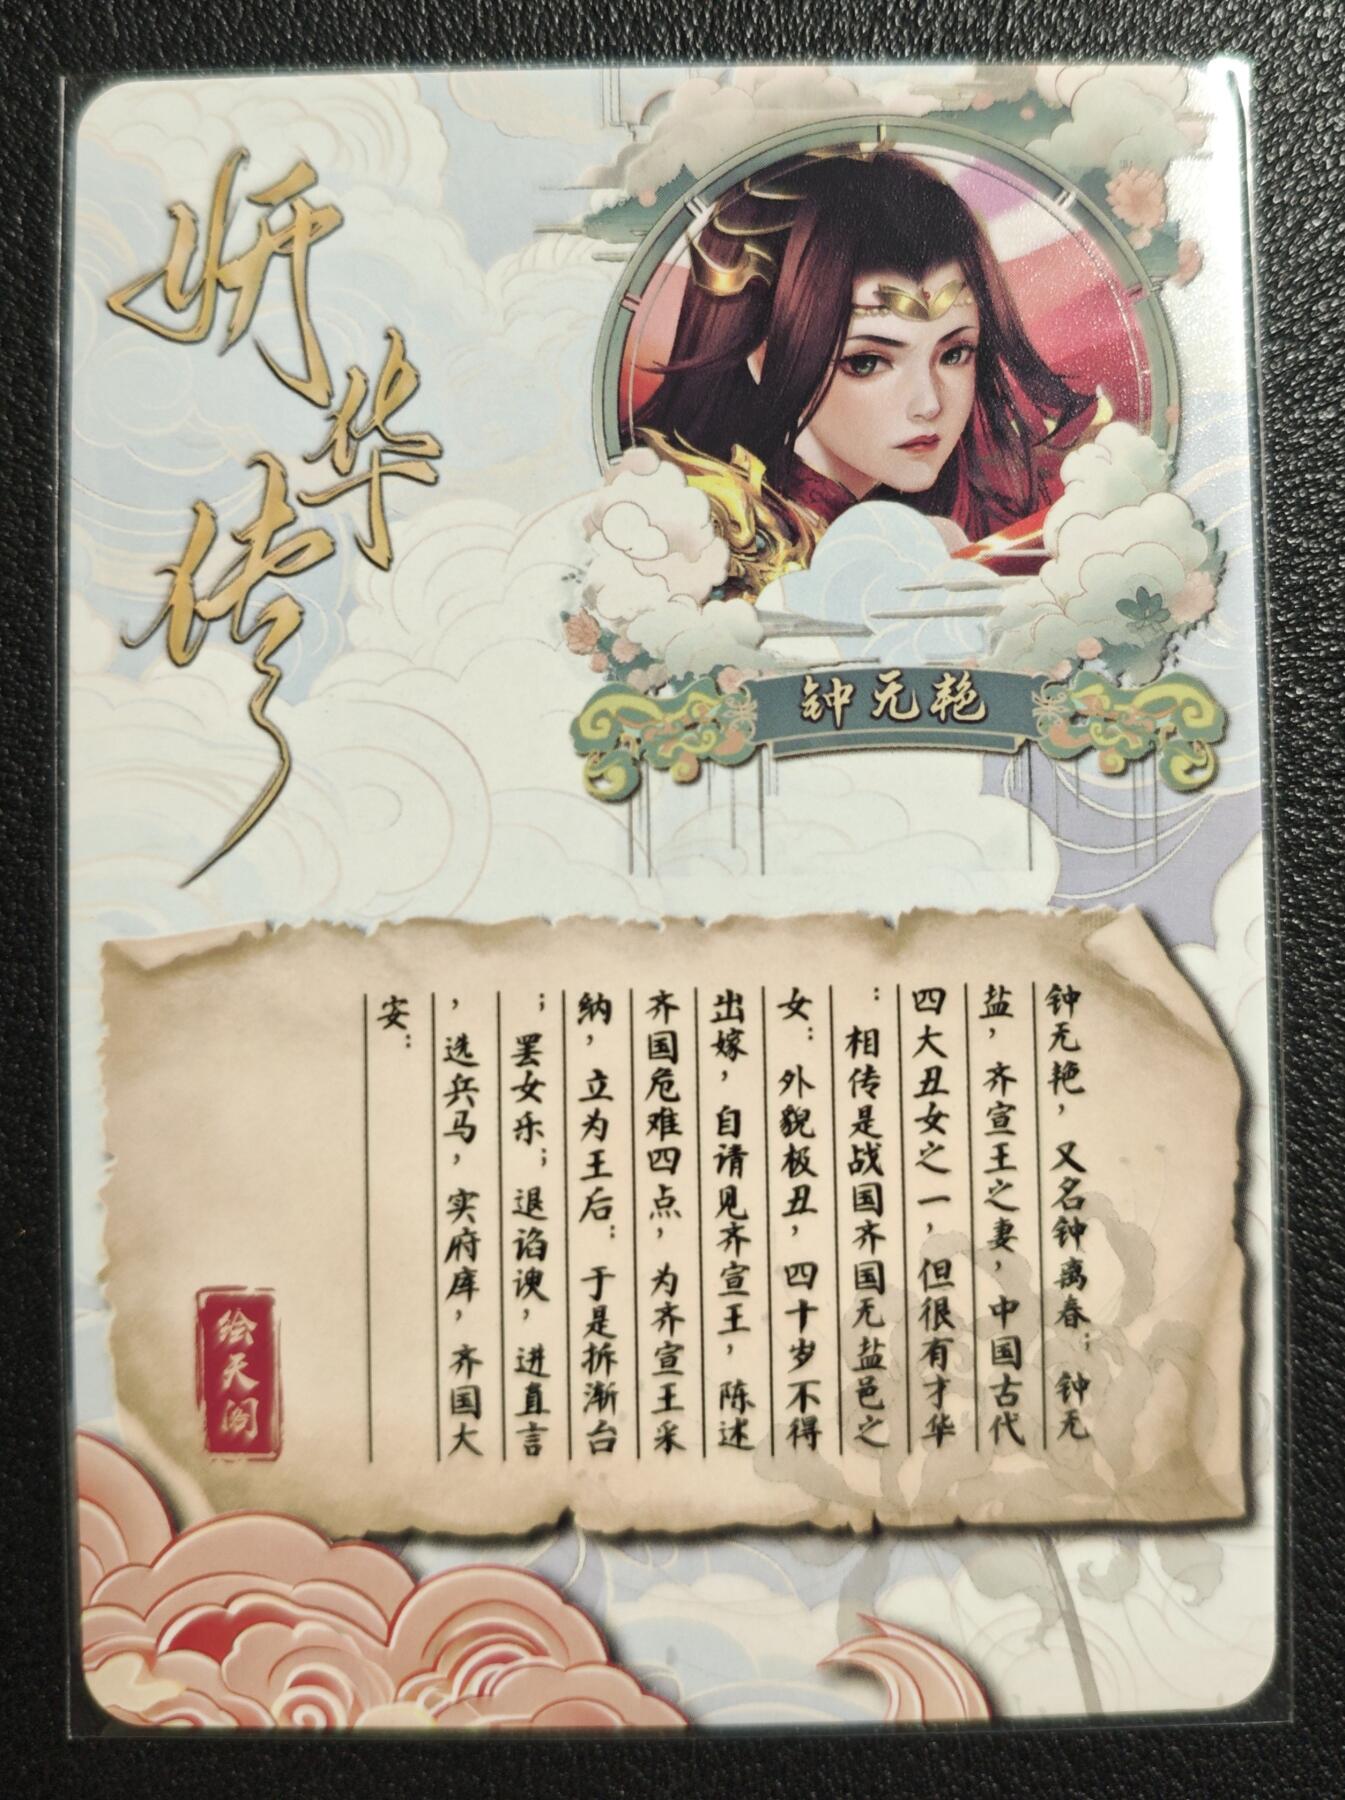 妍华传
钟无艳
钟无艳，又名钟离春；钟无
盐，齐宣王之妻，中国古代
四大丑女之一，但很有才华
：相传是战国齐国无盐邑之
女：外貌极丑，四十岁不得
出嫁，自请见齐宣王，陈述
齐国危难四点，为齐宣王采
纳，立为王后：于是拆渐台
；罢女乐；退谄谀，进直言
，选兵马，实府库，齐国大
安：
绘天阁